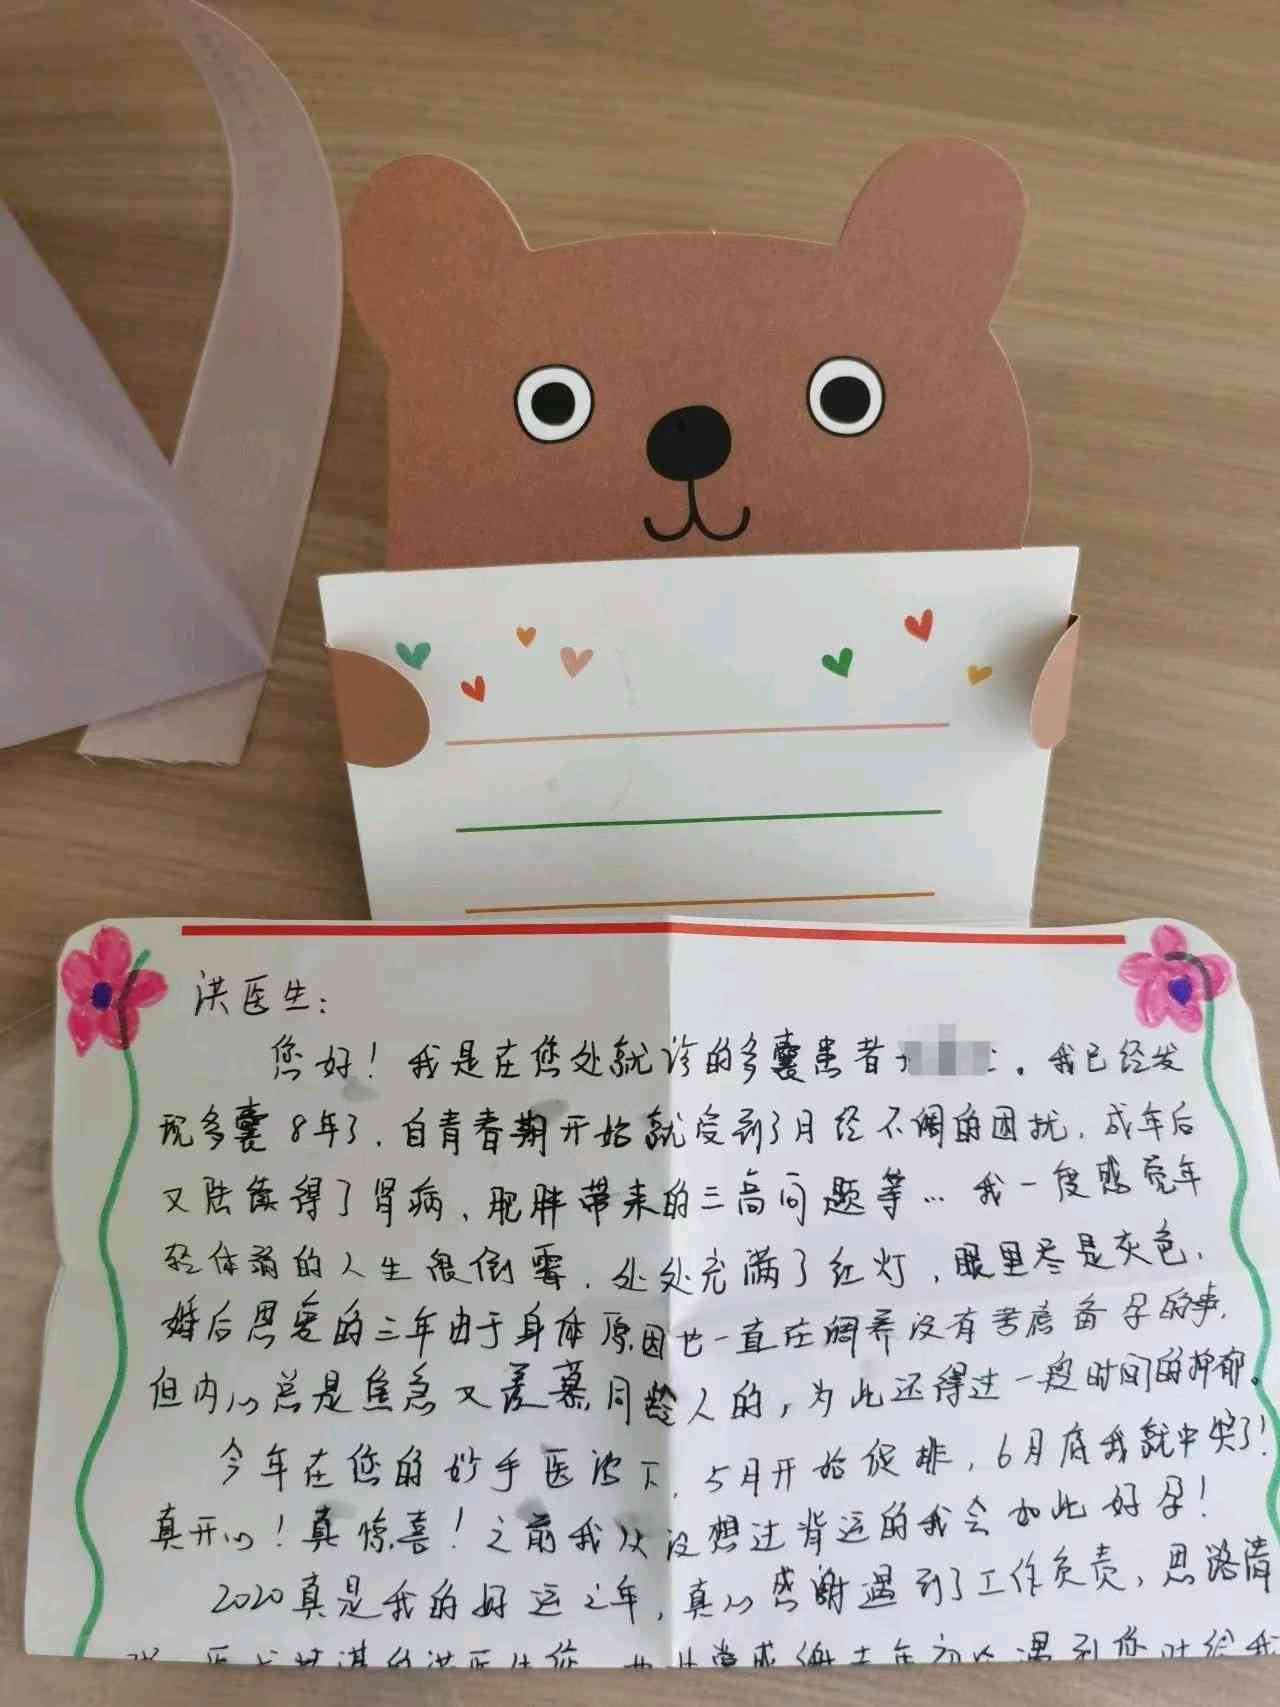 洪医生：
您好！我是在您处就诊的多囊患者。我已经发
现多囊8年了，自青春期开始就受到了月经不调的困扰，成年后
又陆续得了肾病、肥胖带来的三高问题等…我一度感觉年
轻体弱的人生很倒霉，处处充满了红灯，眼里尽是灰色，
婚后恩爱的三年由于身体原因也一直在调养没有考虑备孕的事，
但内心总是焦急又羡慕同龄人的，为此还得过一段时间的抑郁。
今年在您的妙手医治下，5月开始促排，6月底我就中奖了！
真开心！真惊喜！之前我从没想过背运的我会如此好孕！
2020真是我的好运之年，真心感谢遇到了工作负责，思路清